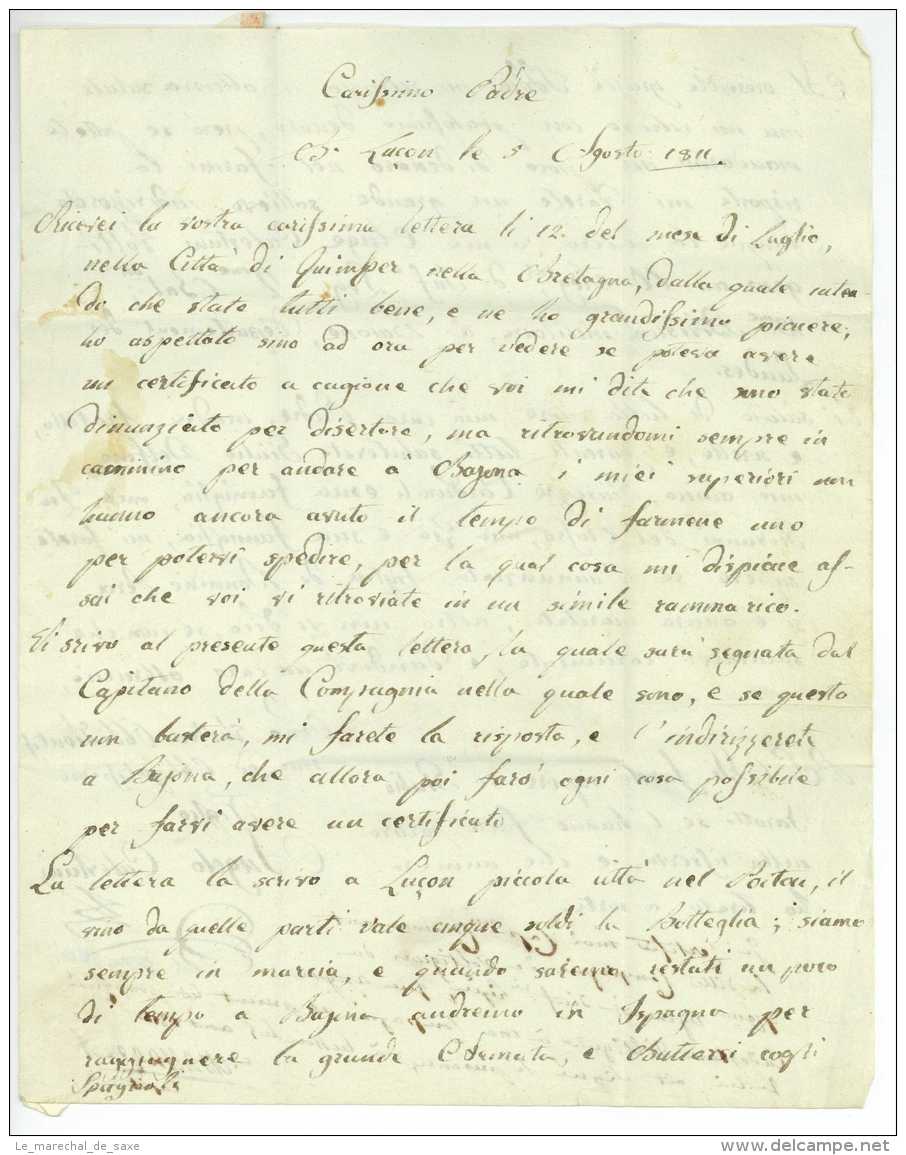 Carissimo Padre
Luçon le 5 Agosto 1811.
Ricevei la vostra carissima lettera li 12. del mese di Luglio,
nella Città di Quimper nella Bretagna, dalla quale inten-
do che state tutti bene, e ne ho grandissimo piacere,
ho aspettato sino ad ora per vedere se poteva avere
un certificato a cagione che voi mi dite che sono stato
dinunziato per disertore, ma ritrovandomi sempre in
cammino per andare à Bajona i miei superiori non
hanno ancora avuto il tempo di farmene uno
per potervi spedire, per la qual cosa mi dispiace as-
sai che voi vi ritroviate in un simile rammarico.
Vi scrivo al presente questa lettera, la quale sarà segnata dal
Capitano della Compagnia nella quale sono, e se questa
non basterà, mi farete la risposta, e l'indirizzerete
a Bajona, che allora poi farò ogni cosa possibile
per farvi avere un certificato
La lettera la scrivo a Luçon piccola città nel Poitou, il
vino da quelle parti vale cinque soldi la Botteglia; siamo
sempre in marcia, e quando saremo restati un poco
di tempo a Bajona andremo in Ispagna per
raggiugnere la grande Armata, e Battersi cogli
Spagnoli
Le_marechal_de_saxe
www.delcampe.net